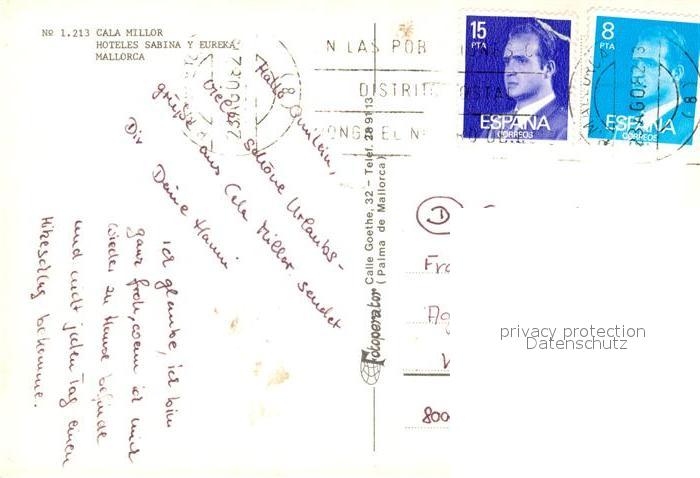 Nº 1.213 CALA MILLOR
HOTELES SABINA Y EUREKA
MALLORCA
Hallo
viele schöne Urlaubs-
grüße aus Cala Millor sendet
Dir
Deine Hanni
ich glaube, ich bin
ganz froh, wenn ich mich
wieder zu Hause befinde
und nicht jeden Tag einen
Hitzeschlag bekomme.
Fotoperator Calle Goethe, 32 - Telef. 28 91 13
(Palma de Mallorca)
N LAS POB
DISTRITO POSTAL
PONGA EL Nº
15
PTA
ESPAÑA
CORREOS
8
PTA
ESPAÑA
CORREOS
D
Fr
Ag
800
privacy protection
Datenschutz